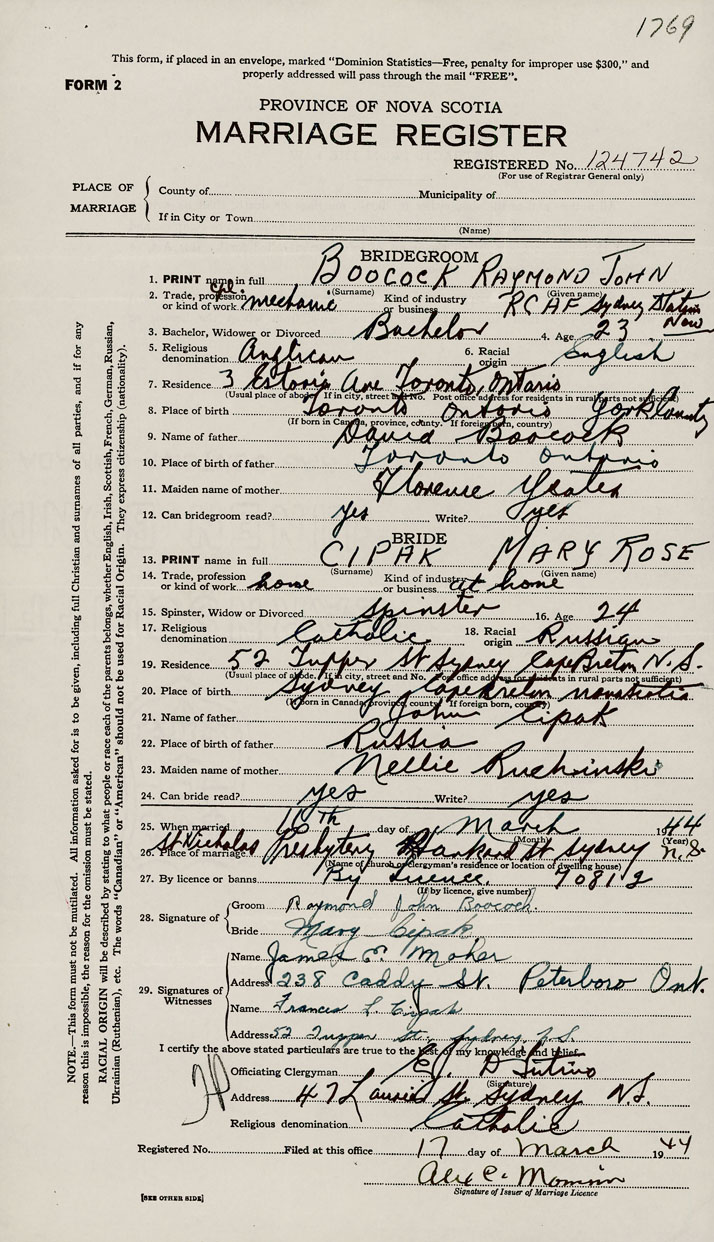 1769
This form, if placed in an envelope, marked "Dominion Statistics—Free, penalty for improper use $300," and
properly addressed will pass through the mail "FREE".
FORM 2
PROVINCE OF NOVA SCOTIA
MARRIAGE REGISTER
REGISTERED No. 124742
(For use of Registrar General only)
PLACE OF MARRIAGE
County of
Municipality of
If in City or Town
(Name)
BRIDEGROOM
1. PRINT name in full BOOCOCK RAYMOND JOHN
(Surname) (Given name)
2. Trade, profession or kind of work cpl. mechanic Kind of industry or business RCAF Sydney Station Now
3. Bachelor, Widower or Divorced Bachelor 4. Age 23
5. Religious denomination Anglican 6. Racial origin English
7. Residence 3 Estoria Ave Toronto, Ontario
(Usual place of abode. If in city, street and No. Post office address for residents in rural parts not sufficient)
8. Place of birth Toronto Ontario York County
(If born in Canada, province, county. If foreign born, country)
9. Name of father David Boocock
10. Place of birth of father Toronto Ontario
11. Maiden name of mother Florence Yeates
12. Can bridegroom read? Yes Write? yes
BRIDE
13. PRINT name in full CIPAK MARY ROSE
(Surname) (Given name)
14. Trade, profession or kind of work home Kind of industry or business at home
15. Spinster, Widow or Divorced Spinster 16. Age 24
17. Religious denomination Catholic 18. Racial origin Russian
19. Residence 52 Tupper St Sydney Cape Breton N.S.
(Usual place of abode. If in city, street and No. Post office address for residents in rural parts not sufficient)
20. Place of birth Sydney Cape Breton nova scotia
(If born in Canada, province, county. If foreign born, country)
21. Name of father John Cipak
22. Place of birth of father Russia
23. Maiden name of mother Nellie Ruchinski
24. Can bride read? yes Write? yes
25. When married 11th day of March 1944
(Month) (Year)
26. Place of marriage St Nicholas Presbytery St Sydney N.S.
(Name of church or clergyman's residence or location of dwelling house)
27. By licence or banns By Licence 70812
(If by licence, give number)
28. Signature of
Groom Raymond John Boocock.
Bride Mary Cipak
29. Signatures of Witnesses
Name James E. Maher
Address 238 Caddy St. Peterboro Ont.
Name Francis L Cipak
Address 52 Tupper st. Sydney N.S.
I certify the above stated particulars are true to the best of my knowledge and belief.
Officiating Clergyman
(Signature)
Address 47 Laurier St. Sydney N.S.
Religious denomination Catholic
Registered No. Filed at this office 17 day of March 1944
Alex C.
Signature of Issuer of Marriage Licence
[SEE OTHER SIDE]
NOTE.—This form must not be mutilated. All information asked for is to be given, including full Christian and surnames of all parties, and if for any
reason this is impossible, the reason for the omission must be stated.
RACIAL ORIGIN will be described by stating to what people or race each of the parents belongs, whether English, Irish, Scottish, French, German, Russian,
Ukrainian (Ruthenian), etc. The words "Canadian" or "American" should not be used for Racial Origin. They express citizenship (nationality).